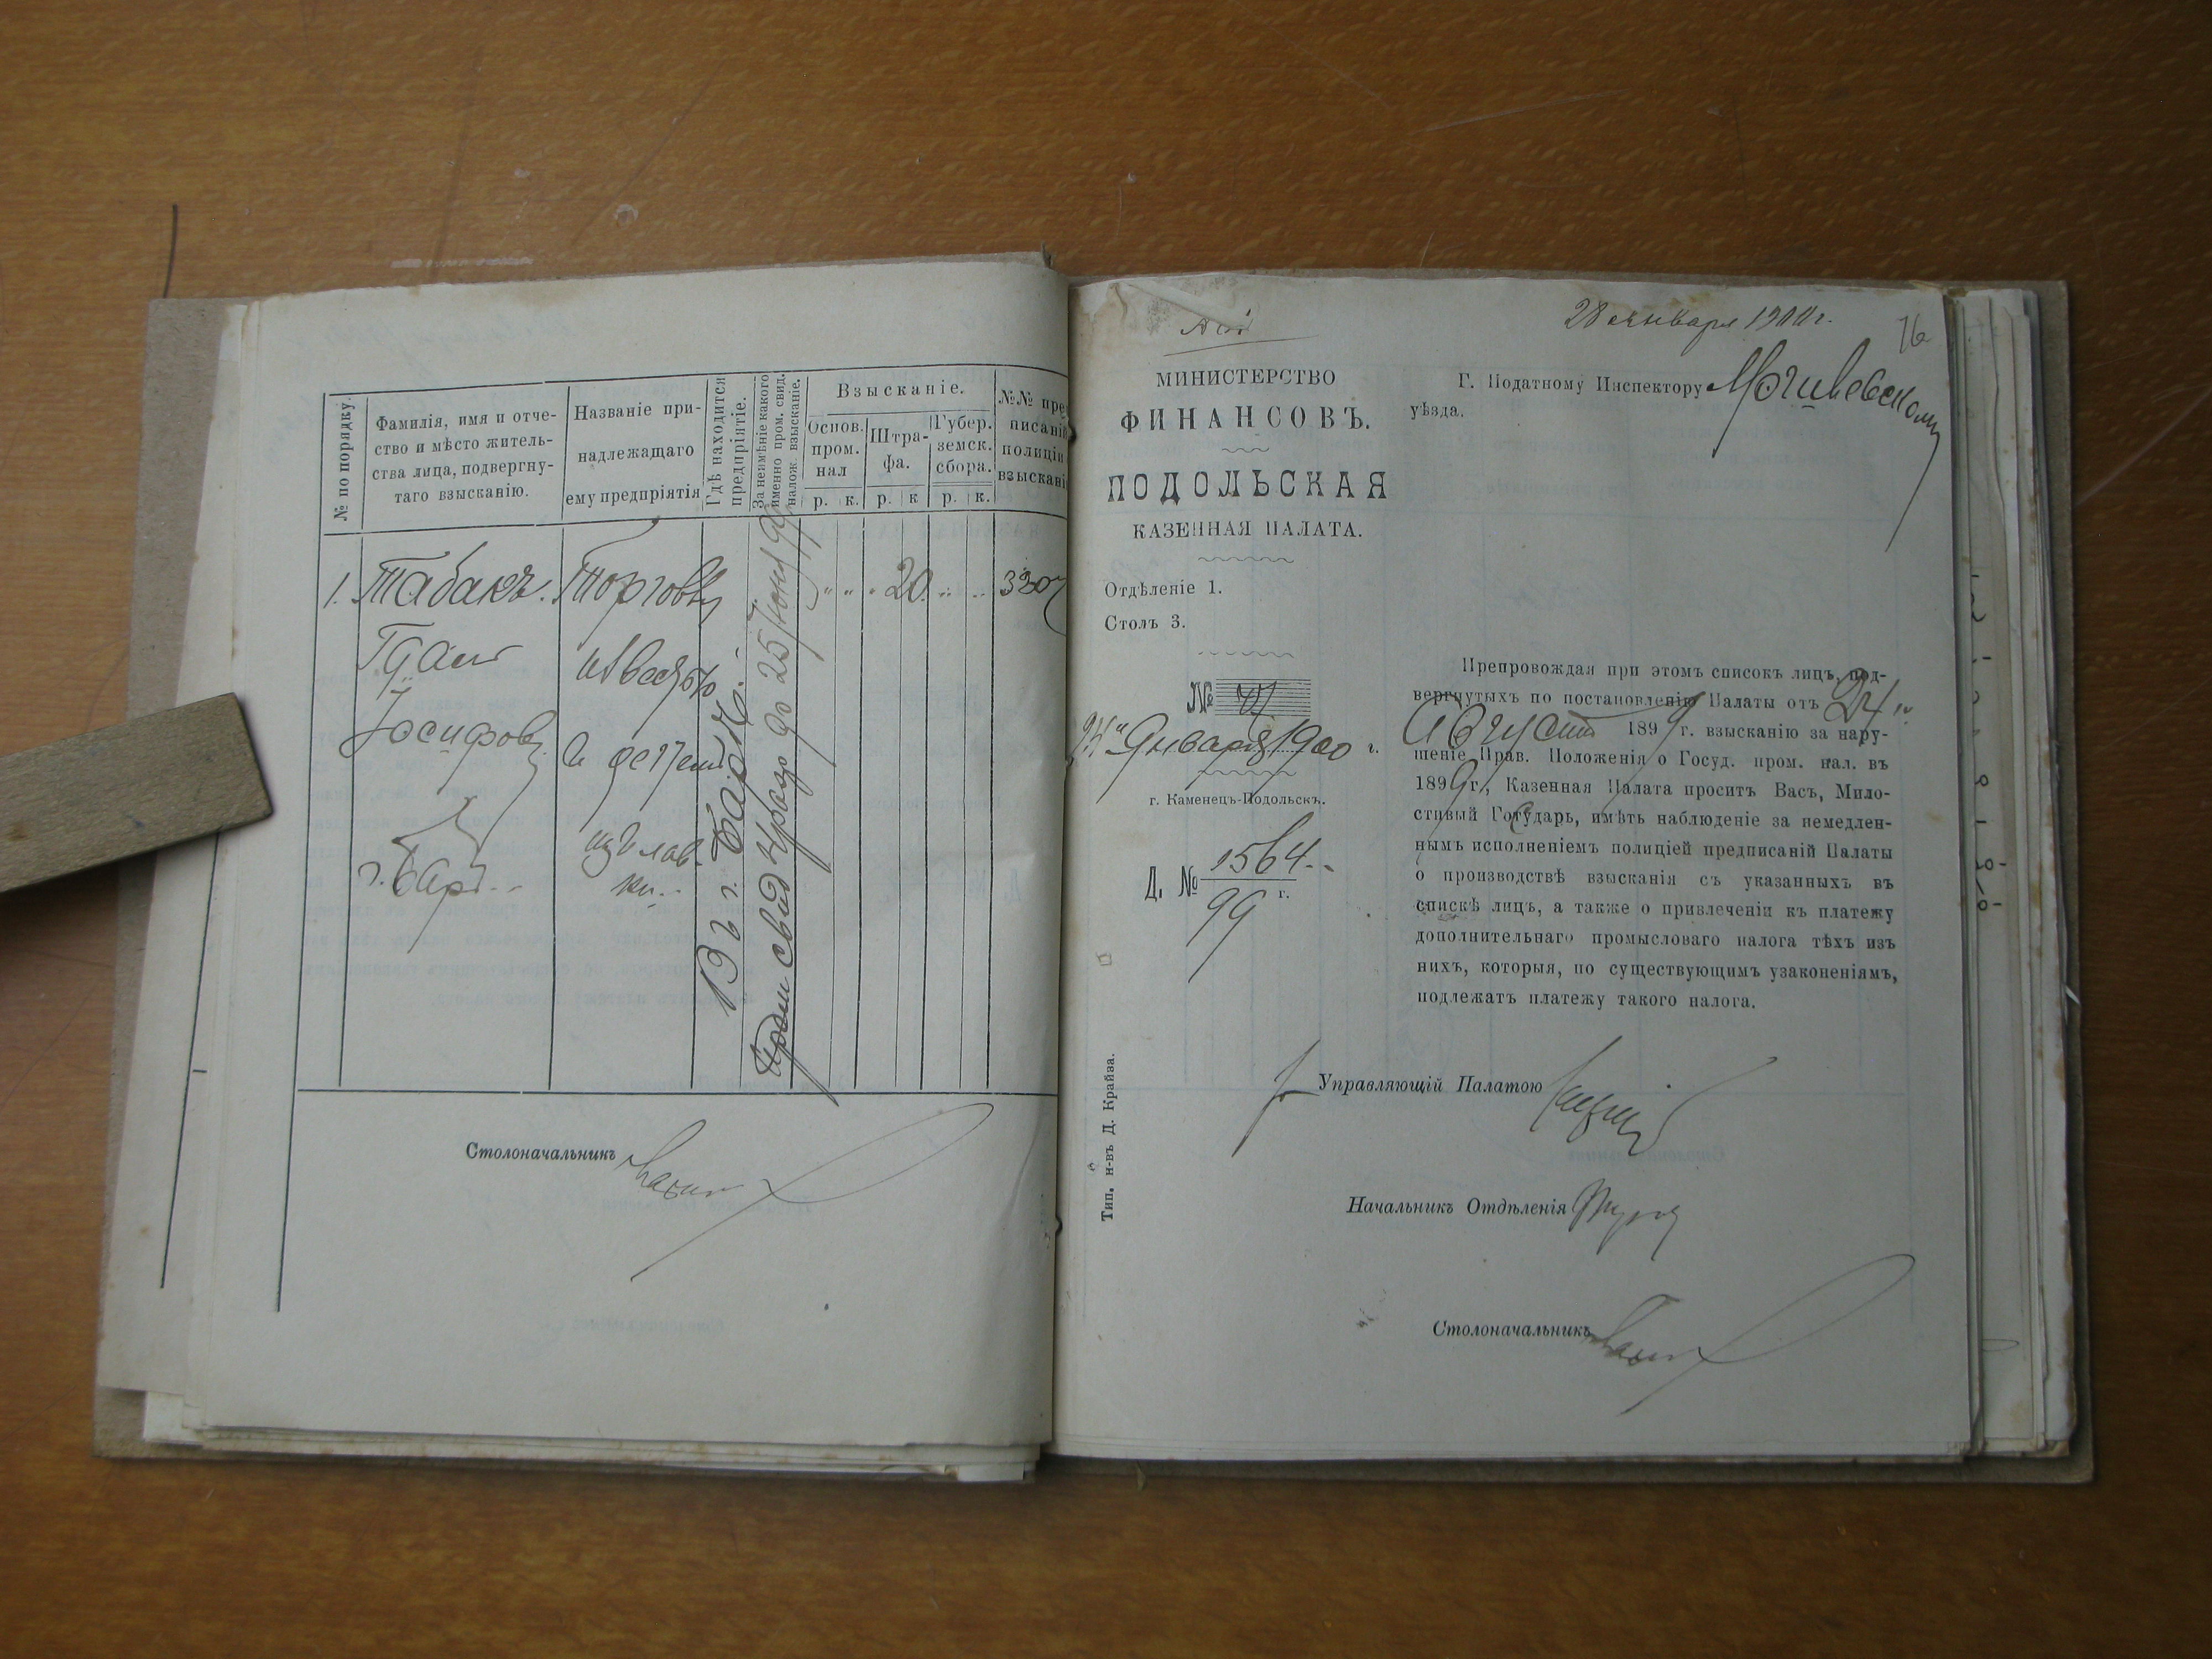 № по порядку.
Фамилія, имя и отче-
ство и мѣсто житель-
ства лица, подвергну-
таго взысканію.
Названіе при-
надлежащаго
ему предпріятія
Гдѣ находится
предпріятіе.
За неимѣніе какого
именно пром. свид.
налож. взысканіе.
Взысканіе.
Основ.
пром.
нал
Штра-
фа.
Губер.
земск.
сбора.
р. к. р. к р. к.
№№ пре
писані
полиціи
взыскані
1. Табакъ
Іосифов
г. Бар
Торговля
и дегтем
из лав-
ки
Въ г. Барѣ
до 25 Іюня 99
20
3207
Столоначальникъ
28 января 1900 г.
76
МИНИСТЕРСТВО
ФИНАНСОВЪ.
ПОДОЛЬСКАЯ
КАЗЕННАЯ ПАЛАТА.
Отдѣленіе 1.
Столъ 3.
№
Января 1900 г.
г. Каменецъ-Подольскъ.
Д. № 1564
99 г.
Тип. н-въ Д. Крайза.
Г. Податному Инспектору Могилевскому
уѣзда.
Препровождая при этомъ списокъ лицъ, под-
вергнутыхъ по постановленію Палаты отъ 24
Августа 1899 г. взысканію за нару-
шеніе Прав. Положенія о Госуд. пром. нал. въ
1899 г., Казенная Палата проситъ Васъ, Мило-
стивый Государь, имѣть наблюденіе за немедлен-
нымъ исполненіемъ полиціей предписаній Палаты
о производствѣ взысканія съ указанныхъ въ
спискѣ лицъ, а также о привлеченіи къ платежу
дополнительнаго промысловаго налога тѣхъ изъ
нихъ, которыя, по существующимъ узаконеніямъ,
подлежатъ платежу такого налога.
Управляющій Палатою
Начальникъ Отдѣленія
Столоначальникъ